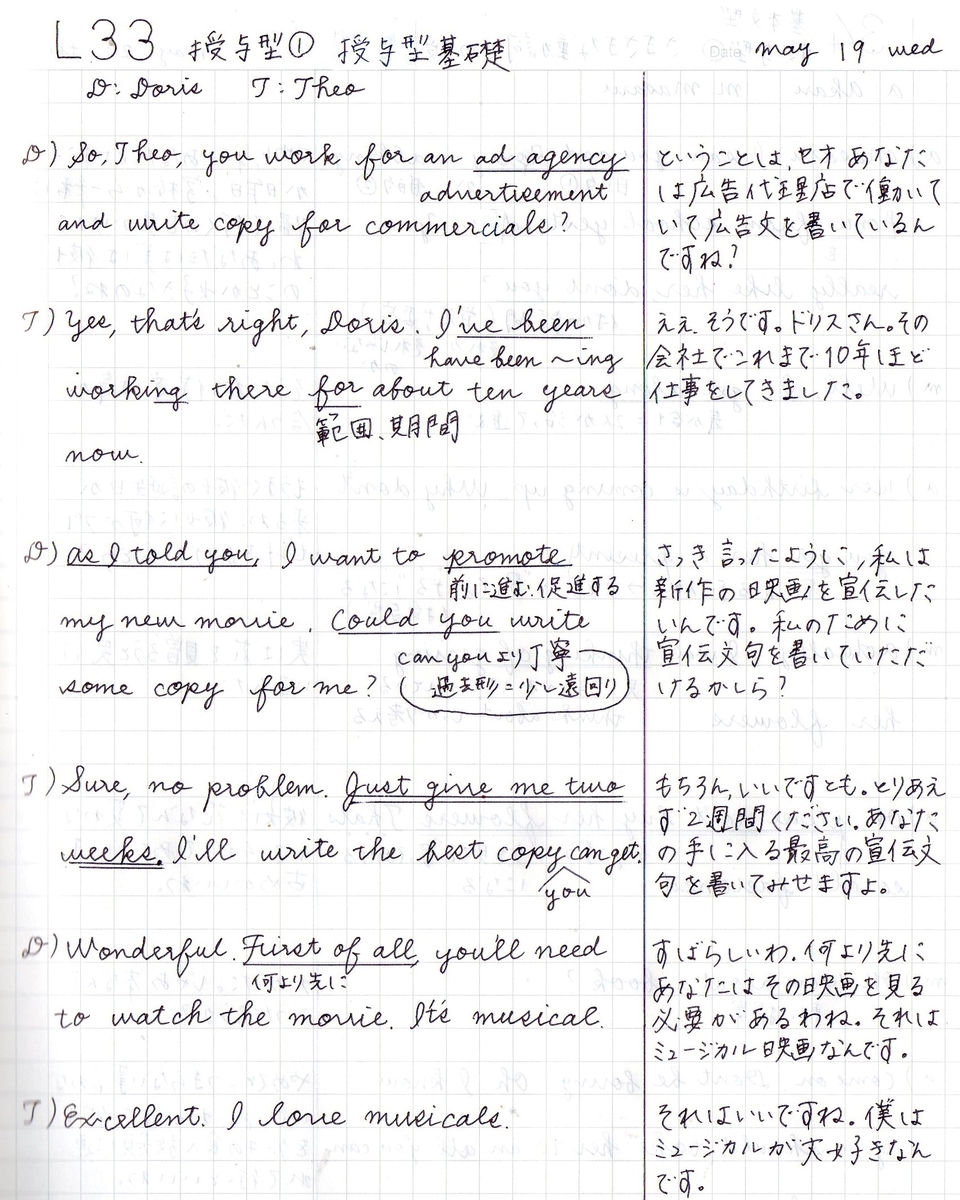 L33 授与型① 授与型基礎 May 19 wed
D: Doris T: Theo
D) So, Theo, you work for an ad agency
advertisement
and write copy for commercials?
ということは、セオ あなた
は広告代理店で働いて
いて広告文を書いているん
ですね?
T) Yes, that's right, Doris. I've been
have been ~ing
working there for about ten years
範囲、期間
now.
ええ、そうです。ドリスさん。その
会社でこれまで10年ほど
仕事をしてきました。
D) As I told you, I want to promote
前に進む、促進する
my new movie. Could you write
can youより丁寧
some copy for me? (過去形=少し遠回り)
さっき言ったように、私は
新作の映画を宣伝した
いんです。私のために
宣伝文句を書いていただ
けるかしら?
T) Sure, no problem. Just give me two
weeks. I'll write the best copy can get.
you
もちろん、いいですとも。とりあえ
ず2週間ください。あなた
の手に入る最高の宣伝文
句を書いてみせますよ。
D) Wonderful. First of all, you'll need
何より先に
to watch the movie. It's musical.
すばらしいわ。何より先に
あなたはその映画を見る
必要があるわね。それは
ミュージカル映画なんです。
T) Excellent. I love musicals.
それはいいですね。僕は
ミュージカルが大好きなん
です。